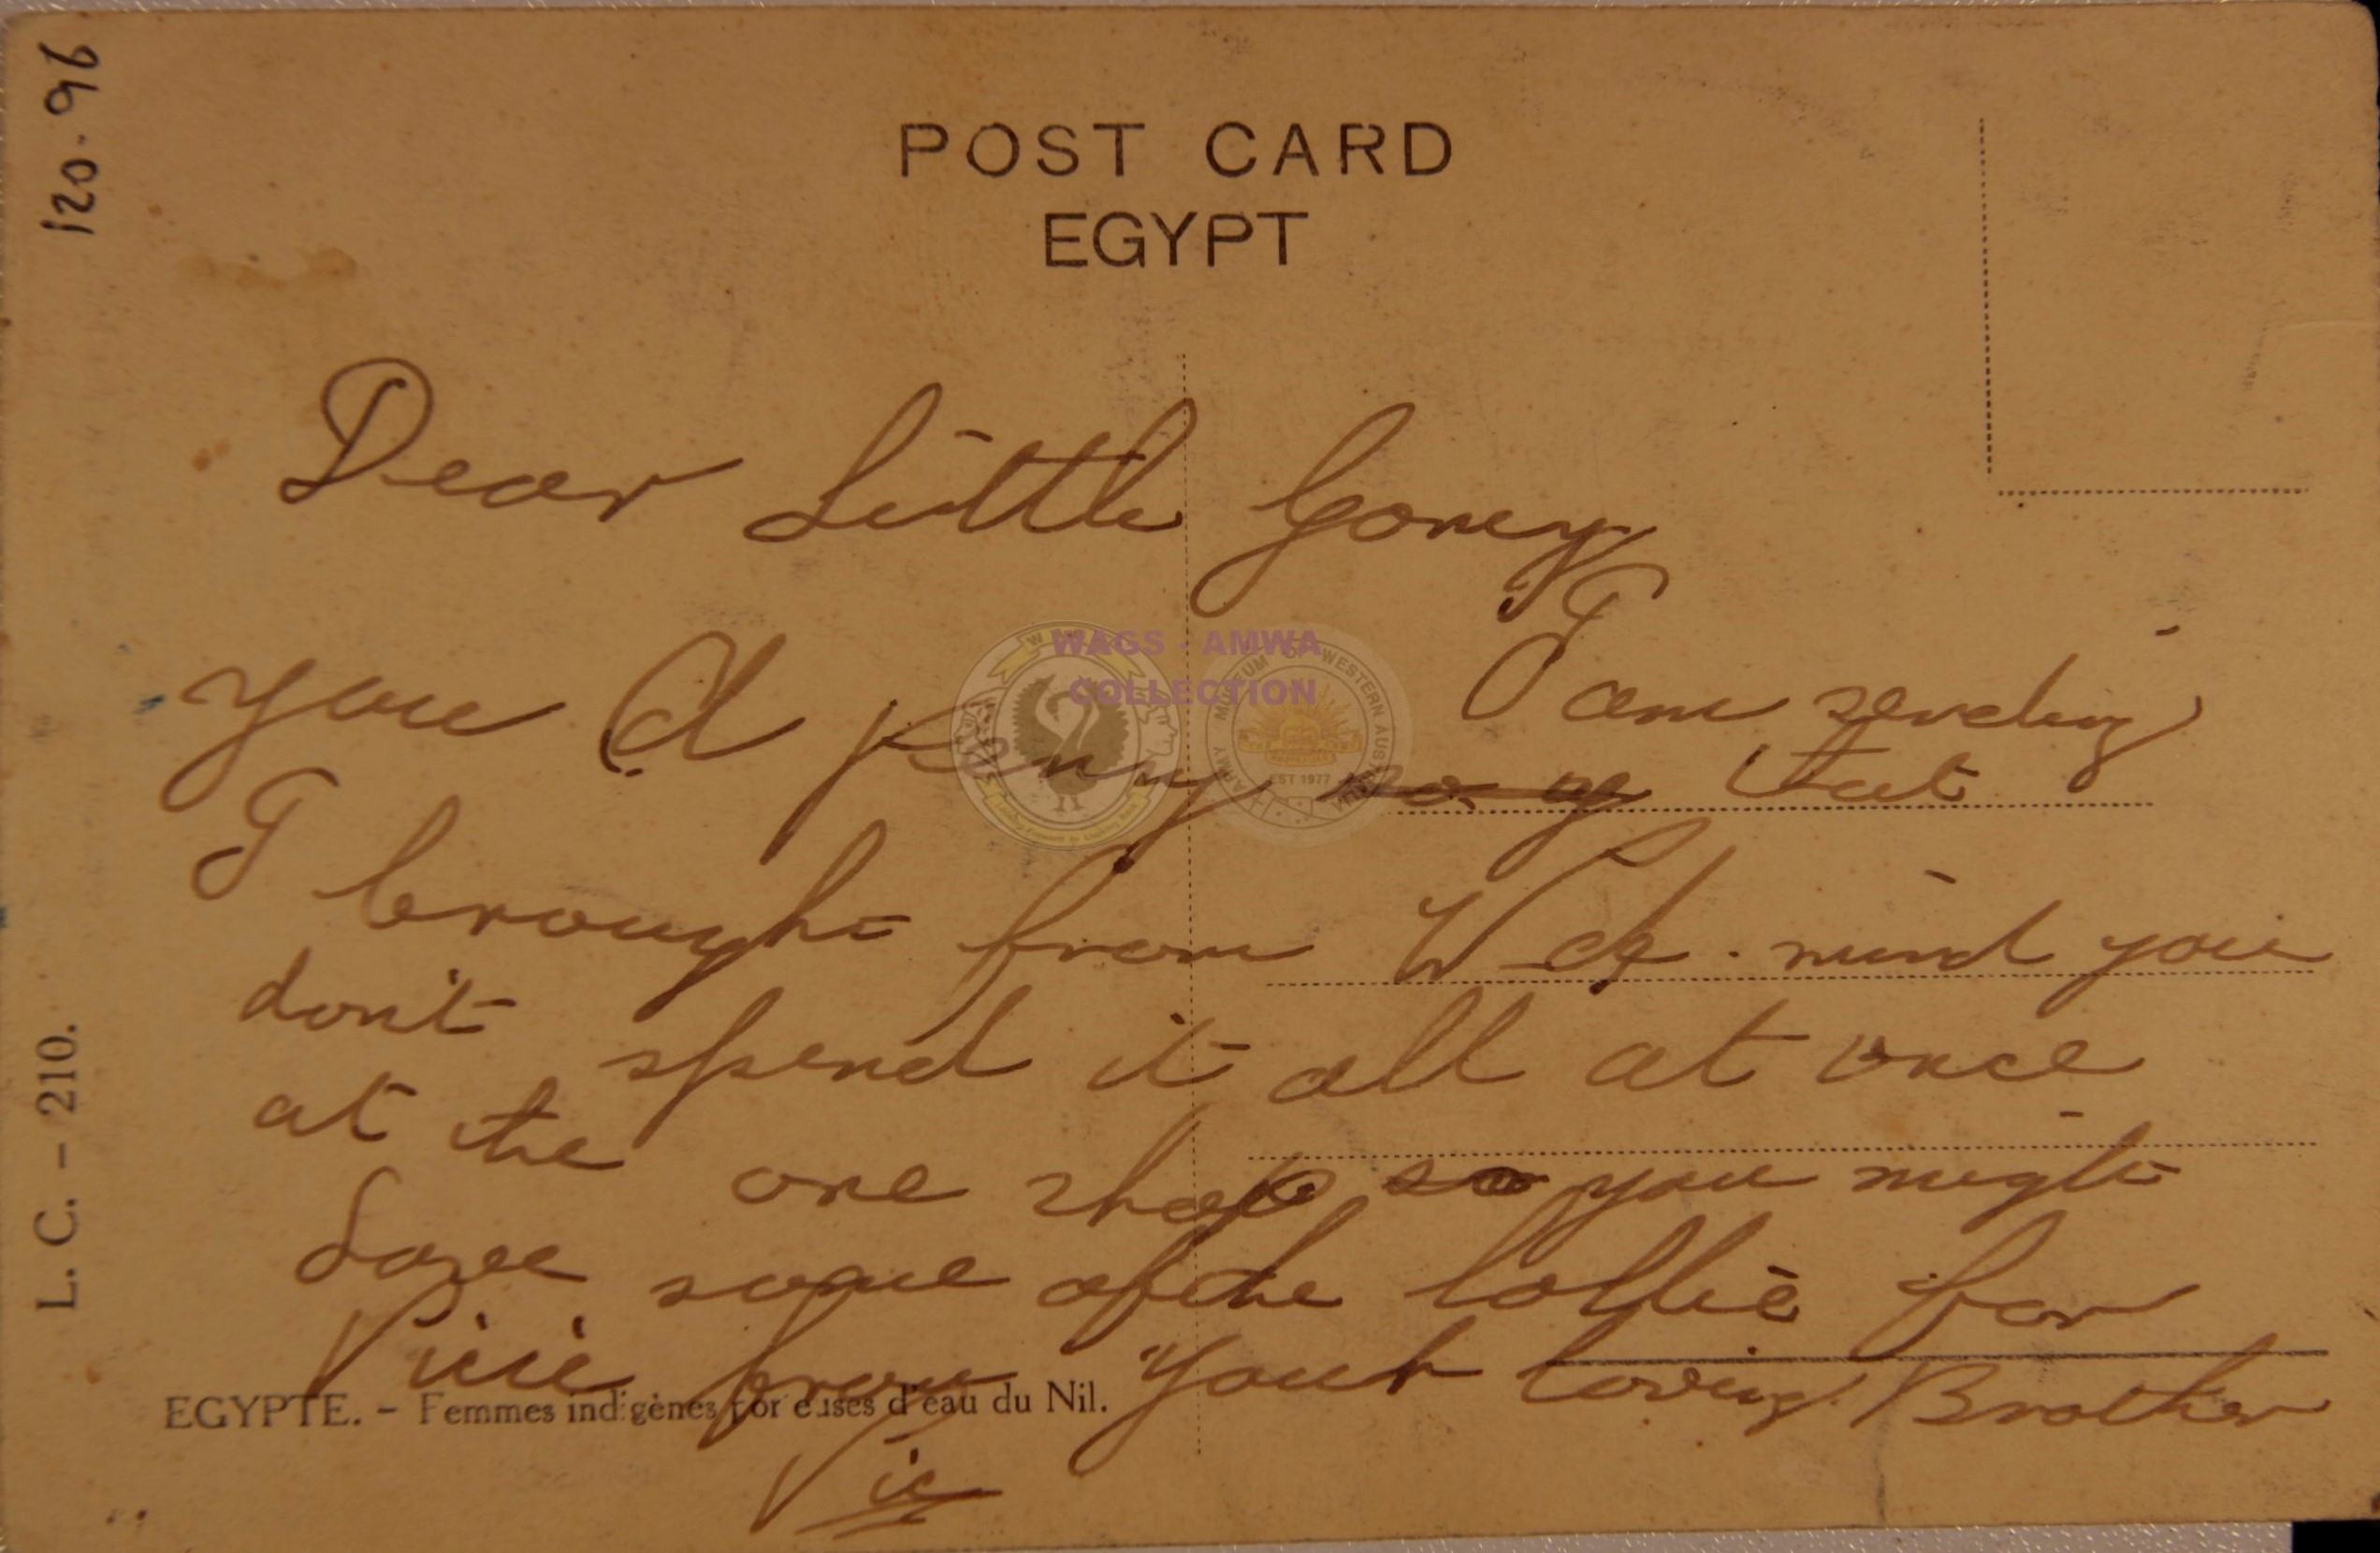 120.96
POST CARD
EGYPT
Dear Little Goney
I am sending
you A penny that
I brought from W A. mind you
don't spend it all at once
at the one shop so you might
Save some of the lollie for
Vicie from your loving Brother
Vic
EGYPTE. - Femmes indigènes porteuses d'eau du Nil.
L. C. - 210.
WAGS - AMWA
COLLECTION